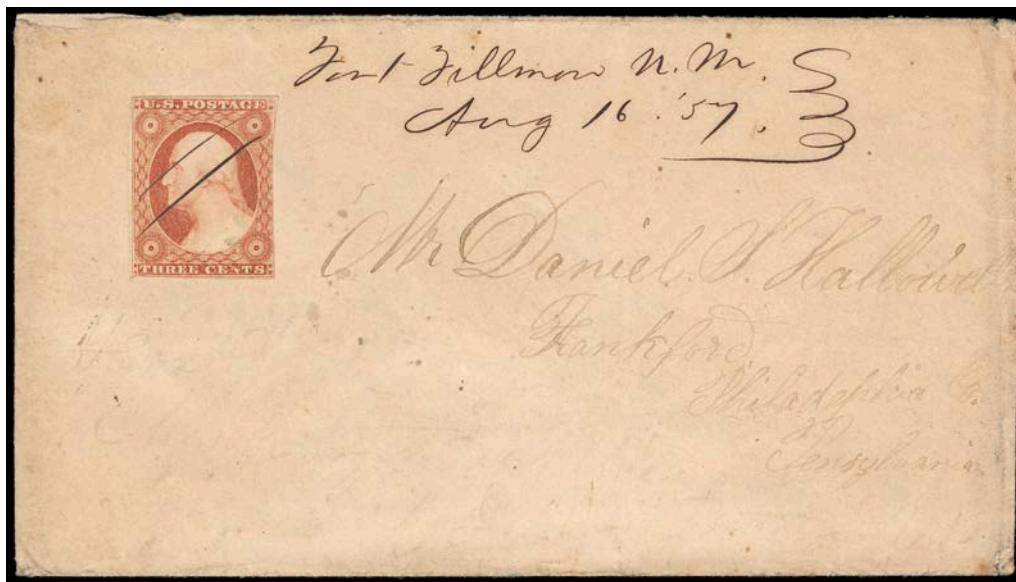 Fort Fillmore N.M.
Aug 16 '57.
U.S. POSTAGE
THREE CENTS
Mr Daniel S. Hallowell
Frankford
Philadelphia Co.
Pensylvania